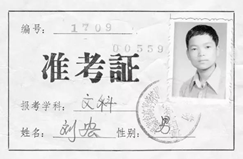 编号： 1709
00559
准考証
报考学科： 文科
姓名： 刘宏 性别： 男